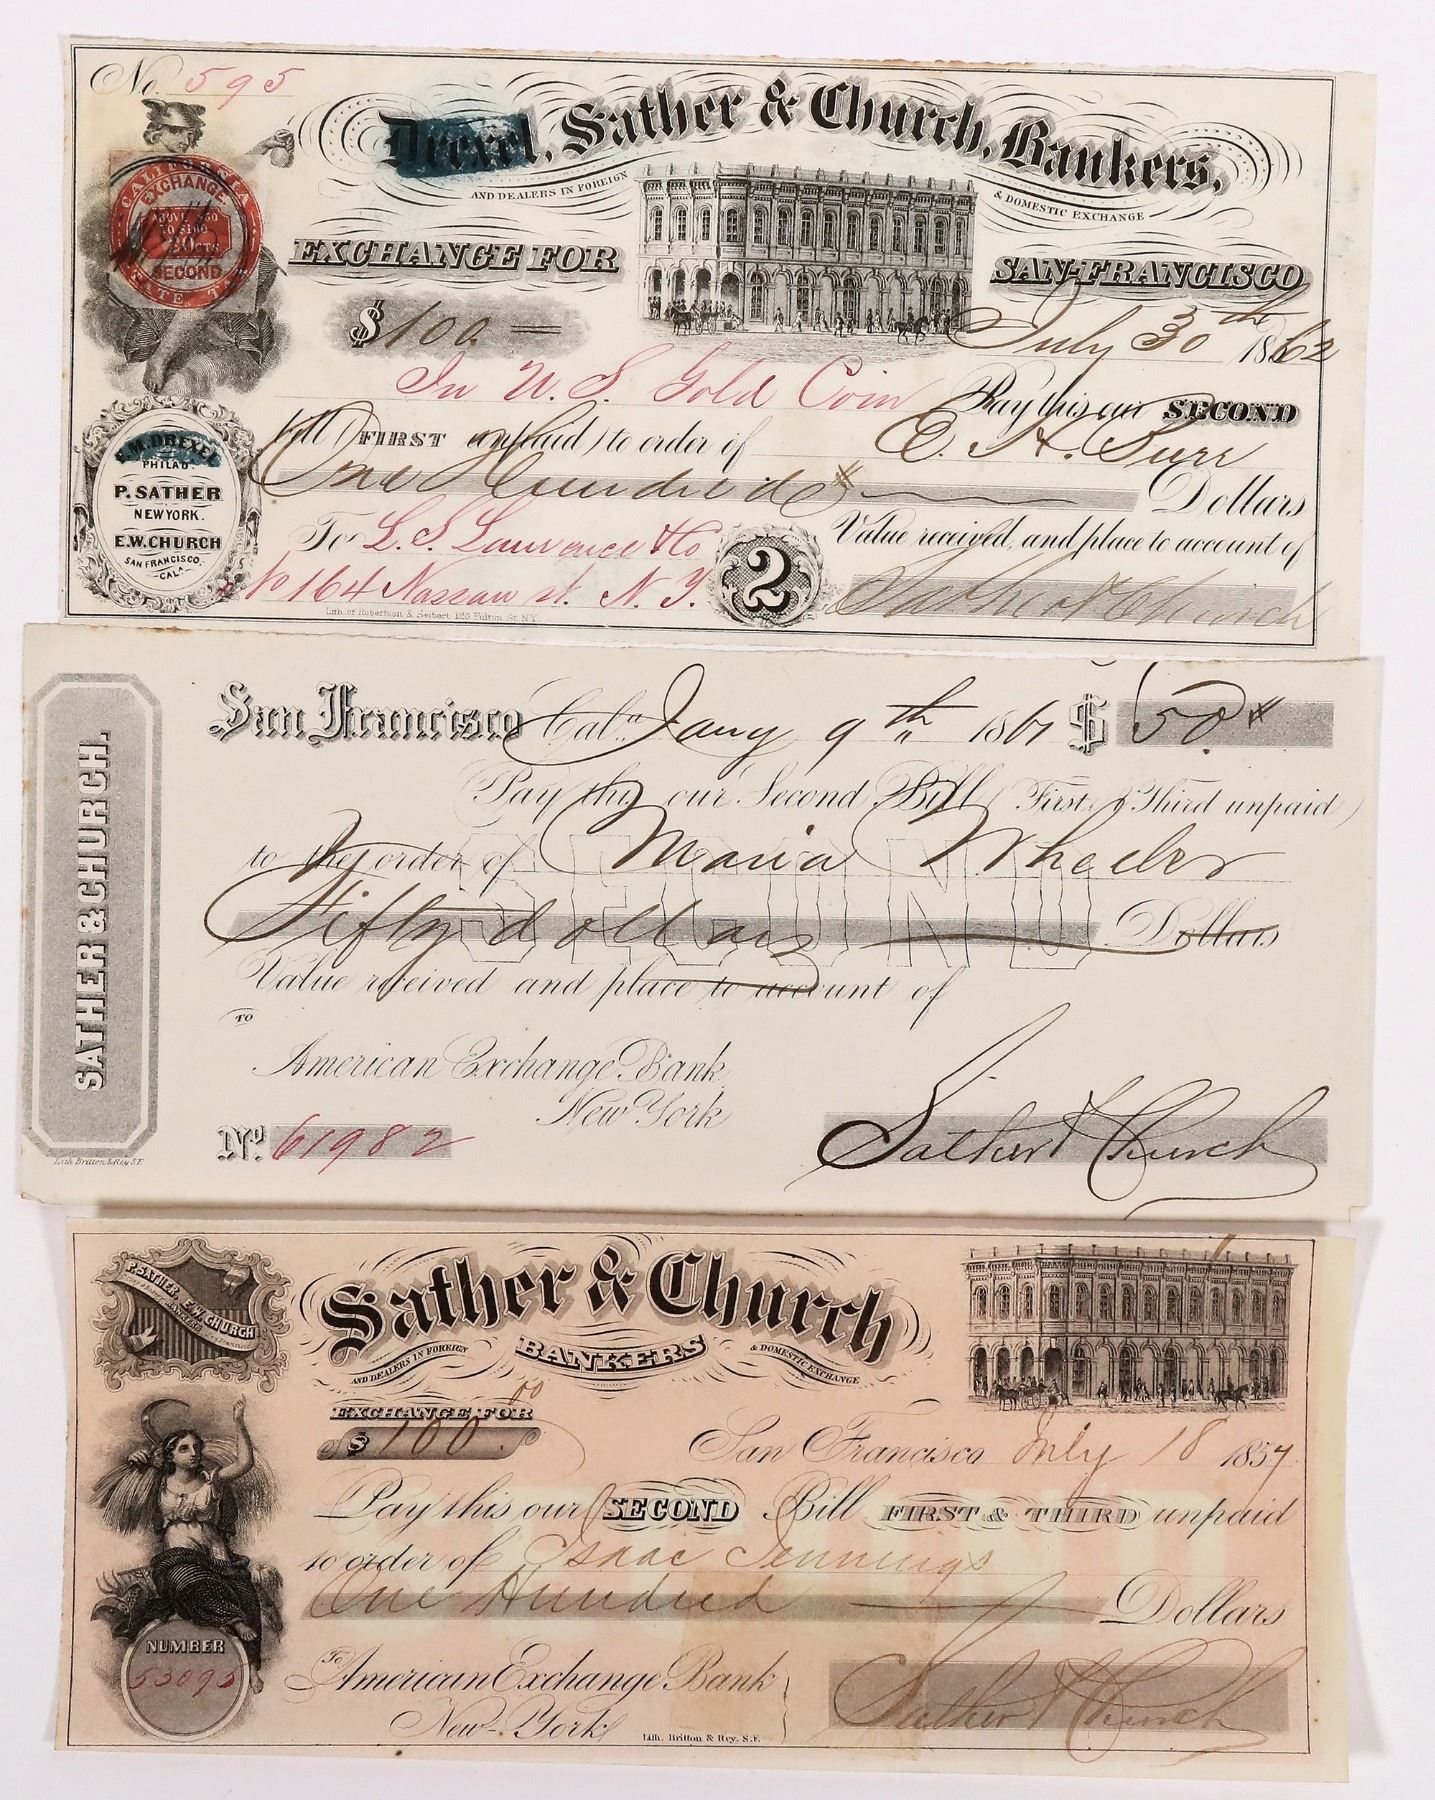 No. 595
Drexel, Sather & Church, Bankers,
AND DEALERS IN FOREIGN & DOMESTIC EXCHANGE
CALIFORNIA
EXCHANGE
ABOVE $50
TO $100
20 CTS
SECOND
STATE TAX
EXCHANGE FOR SAN-FRANCISCO
$ 100 = July 30th 1862
In U. S. Gold Coin Pay this our SECOND
till (FIRST unpaid) to order of E. H. Burr
One Hundred Dollars
F. M. DREXEL
PHILAD.
P. SATHER
NEW YORK.
E.W. CHURCH
SAN FRANCISCO.
CALA
Value received, and place to account of
To L. S. Lawrence & Co
No 164 Nassau st. N. Y.
2
Sather & Church
Lith. of Robertson & Seibert 120 Fulton St. N.Y.
SATHER & CHURCH.
San Francisco Cala. Jany 9th 1861 $ 50
Pay this our Second Bill (First & Third unpaid)
to the order of Maria Wheeler
SECOND
Fifty dollars Dollars
Value received and place to account of
TO
American Exchange Bank
New York
No. 61982
Sather & Church
Lith. Britton & Rey S.F.
P. SATHER. E.W. CHURCH
BANKERS
Sather & Church
BANKERS
AND DEALERS IN FOREIGN & DOMESTIC EXCHANGE
EXCHANGE FOR
$ 100.00
San Francisco July 18 1857
Pay this our SECOND Bill FIRST & THIRD unpaid
to order of Isaac Jennings
One Hundred Dollars
NUMBER
53095
To American Exchange Bank
New-York
Sather & Church
Lith. Britton & Rey, S.F.